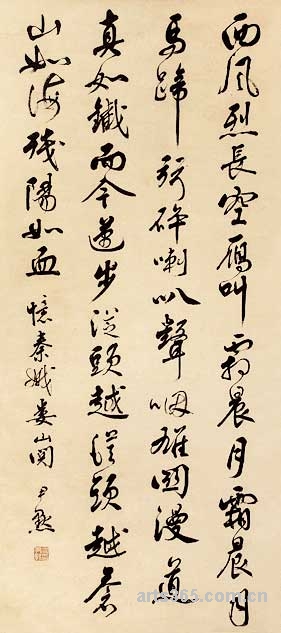 西風烈長空鴈叫霜晨月霜晨月
馬蹄聲碎喇叭聲咽雄關漫道
真如鐵而今邁步從頭越從頭越蒼
山如海殘陽如血 憶秦娥婁山關 尹默
arts365.com.cn